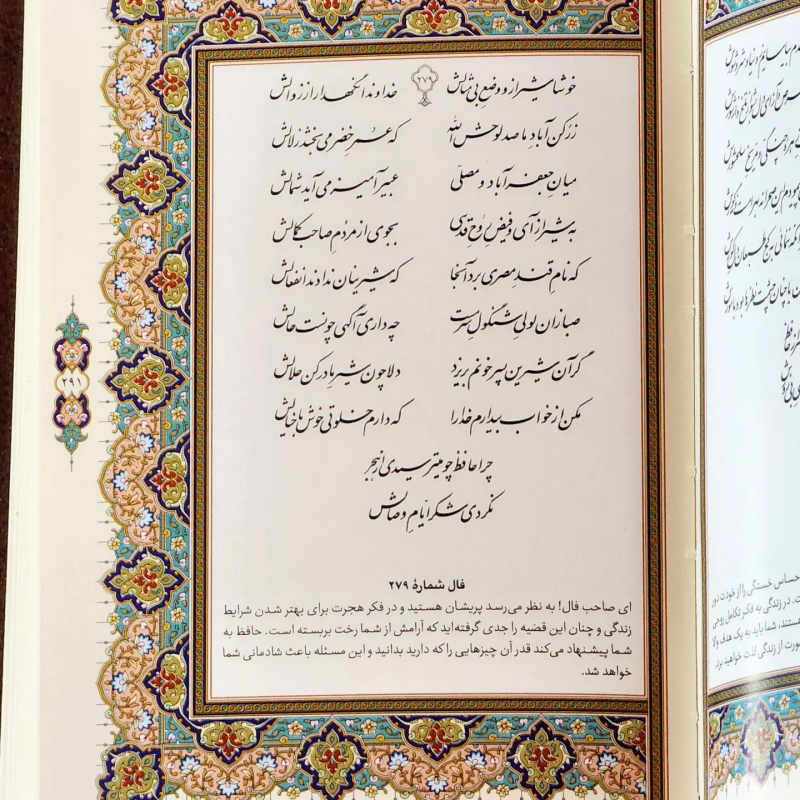 ۲۷۹
خوشا شیراز و وضعِ بی‌مثالش خداوندا نگهدار از زوالش
ز رُکن‌آبادِ ما صد لوحش الله که عُمرِ خِضر می‌بخشد زلالش
میانِ جعفرآباد و مصلّی عبیرآمیز می‌آید شمالش
به شیراز آی و فیضِ روحِ قدسی بجوی از مردُمِ صاحب کمالش
که نامِ قندِ مصری برد آنجا که شیرینان ندادند انفعالش
صبا زان لولیِ شنگولِ سرمست چه داری آگهی چونست حالش
گر آن شیرین پسر خونم بریزد دلا چون شیرِ مادر کن حلالش
مکن از خواب بیدارم خدا را که دارم خلوتی خوش با خیالش
چرا حافظ چو می‌ترسیدی از هجر
نکردی شکرِ ایّامِ وصالش
فال شمارهٔ ۲۷۹
ای صاحب فال! به نظر می‌رسد پریشان هستید و در فکر هجرت برای بهتر شدن شرایط
زندگی و چنان این قضیه را جدی گرفته‌اید که آرامش از شما رخت بربسته است. حافظ به
شما پیشنهاد می‌کند قدر آن چیزهایی را که دارید بدانید و این مسئله باعث شادمانی شما
خواهد شد.
۲۹۱
حساس خستگی را از خودت دور
ت. در زندگی به فکر تکامل روحی
هستند، شما باید به یک هدف والا
صورت از زندگی لذت خواهید برد.